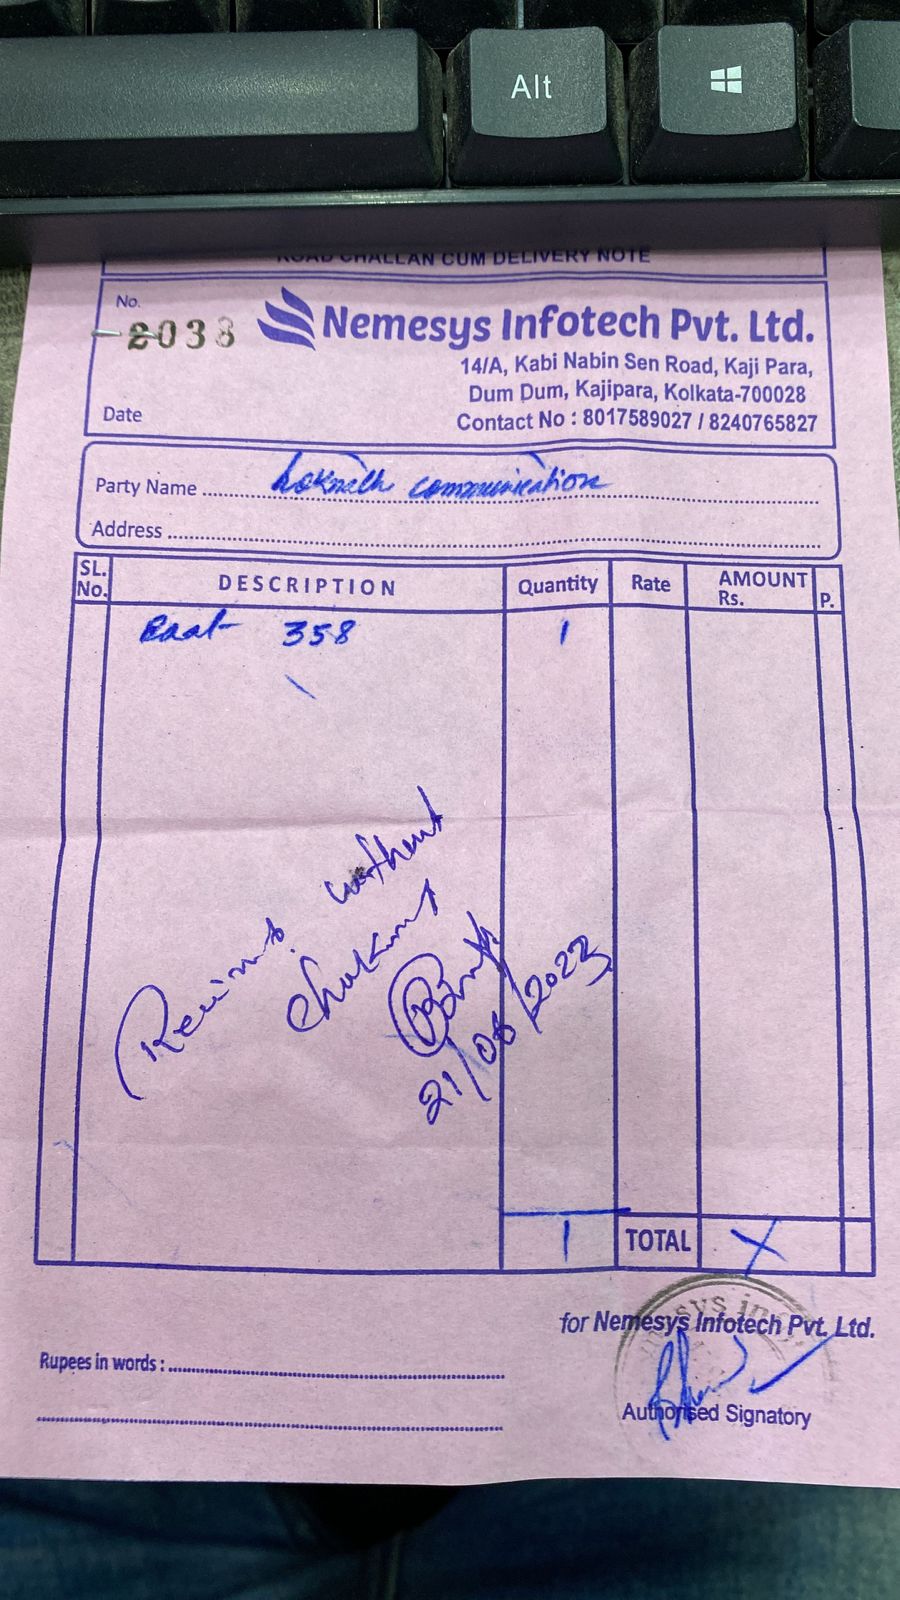 Alt
ROAD CHALLAN CUM DELIVERY NOTE
No.
2038
Nemesys Infotech Pvt. Ltd.
14/A, Kabi Nabin Sen Road, Kaji Para,
Dum Dum, Kajipara, Kolkata-700028
Contact No : 8017589027 / 8240765827
Date
Party Name Loknath communication
Address
SL. No. DESCRIPTION Quantity Rate AMOUNT Rs. P.
358 1
without
21/08/2023
1 TOTAL X
for Nemesys Infotech Pvt. Ltd.
Rupees in words :
Authorised Signatory